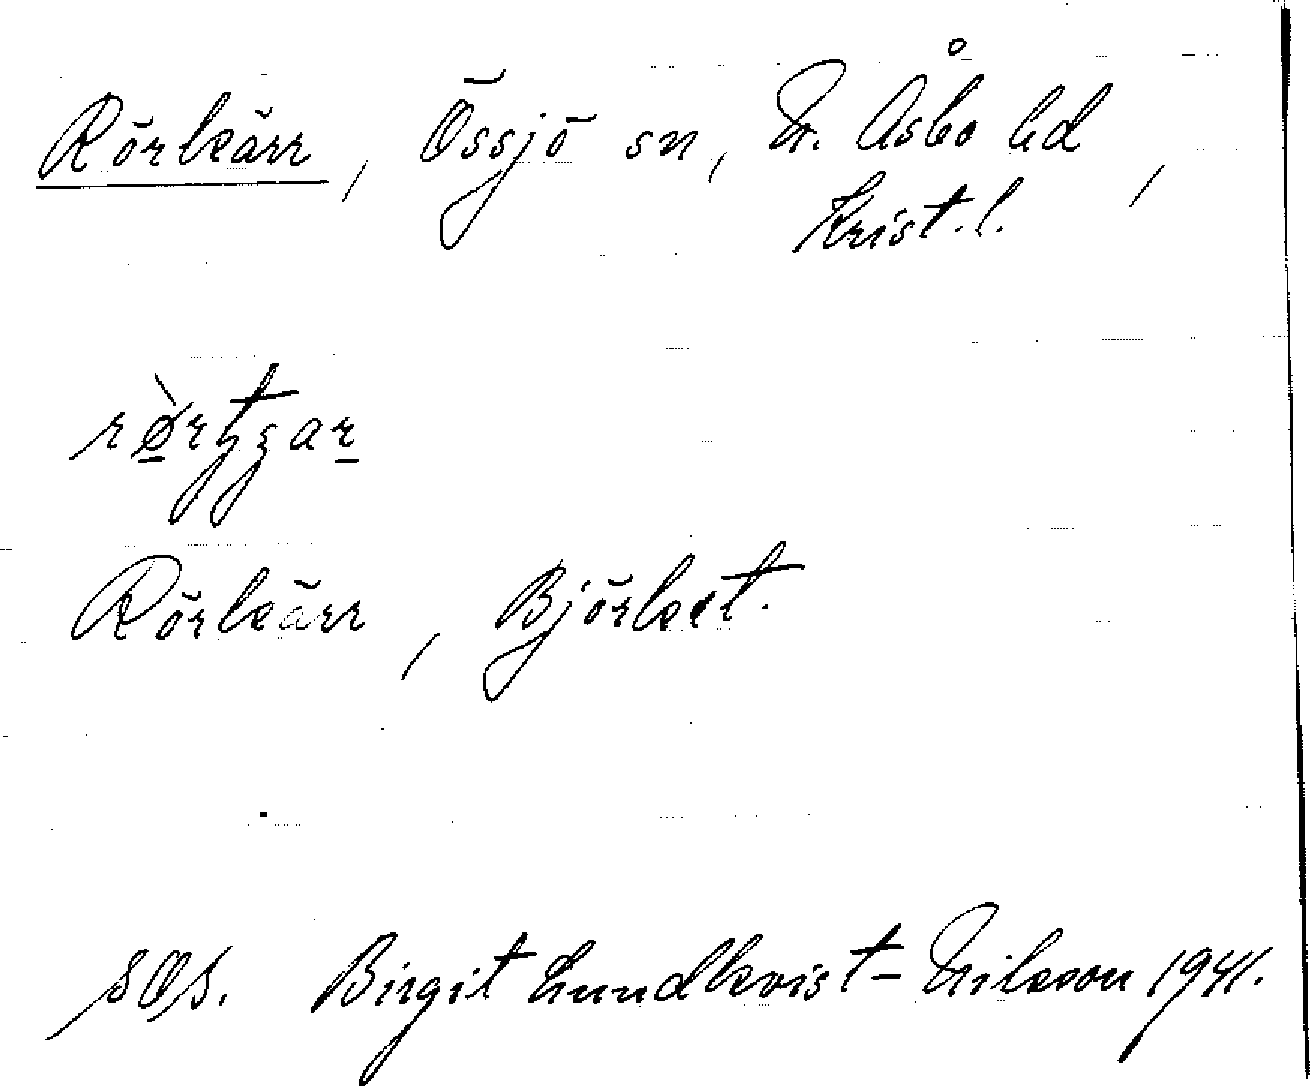 Rörkärr, Össjö sn, N. Åsbo hd,
Krist. l.
Rörkärr, Björket.
Birgit Lundkvist-Nilsson 1941.